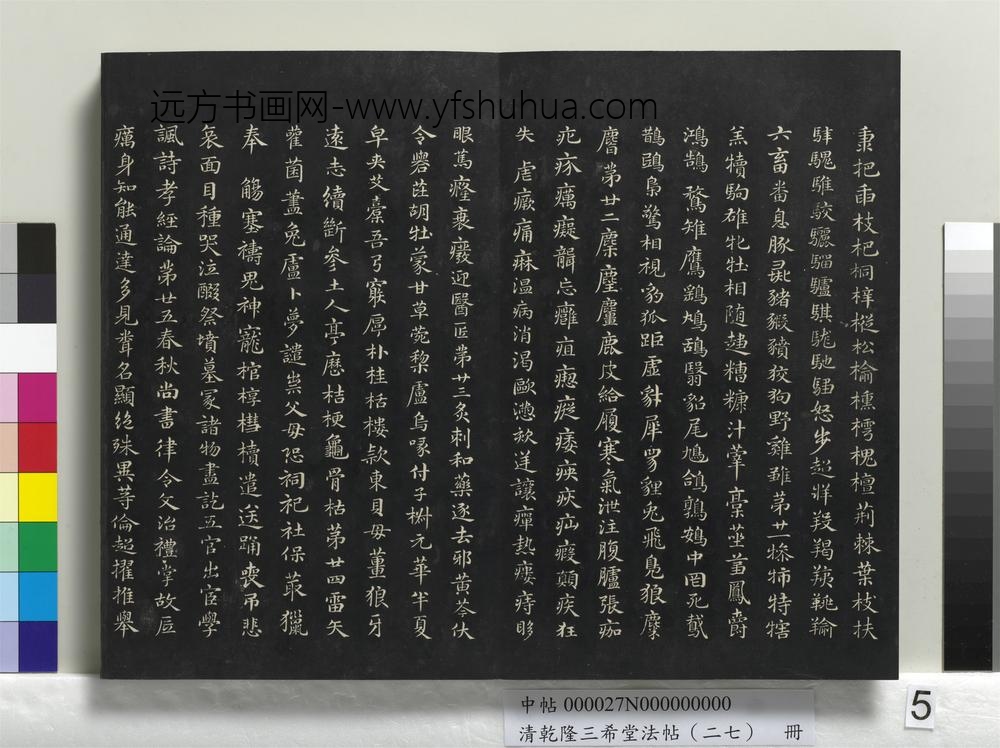 秉把臿枝杷桐梓樅松榆櫄樗槐檀荊棘葉枝扶
騂騩騅駮驪騮驢騏駹馳驅怒步超牂羖羯羠羭
六畜番息豚豬豭豶狡狗野雞雛第廿一㹀㹑特犗
羔犢駒雄牝牡相隨趨糟糠汁滓稾莝芻鳳爵
鴻鵠鶩雉鷹鷂鳩鴞翳貂尾鳩鴿鶉鴳中罔死
鵲鴟梟驚相視豹狐距虛豺犀兕貍兔飛鼯狼麋
麐第廿二麇麈麠鹿皮給履寒氣泄注腹臚張痂
疕疥癘癡聾忘癰疽瘛瘲痿疢疝瘕顛疾狂
失瘧瘚痛痳溫病消渴歐懣欬逆讓癉熱瘻痔眵
眼篤癃衰癈迎醫匠第廿三灸刺和藥逐去邪黃芩伏
令礜茈胡牡蒙甘草菀藜蘆烏喙付子椒元華半夏
皁莢艾橐吾弓窮厚朴桂栝樓款東貝母薑狼牙
遠志續斷參土人亭歷桔梗龜骨枯第廿四雷矢
雚菌藎兔盧卜夢譴祟父母恐祠祀社保叢獵
奉 觴塞禱鬼神寵棺槨櫘櫝遣送踊喪弔悲
哀面目種哭泣醊祭墳墓冢諸物盡訖五官出宦學
諷詩孝經論第廿五春秋尚書律令文治禮掌故底
癘身知能通達多見聞名顯絕殊異等倫超擢推舉
远方书画网-www.yfshuhua.com
中帖 000027N000000000
清乾隆三希堂法帖（二七） 冊
5